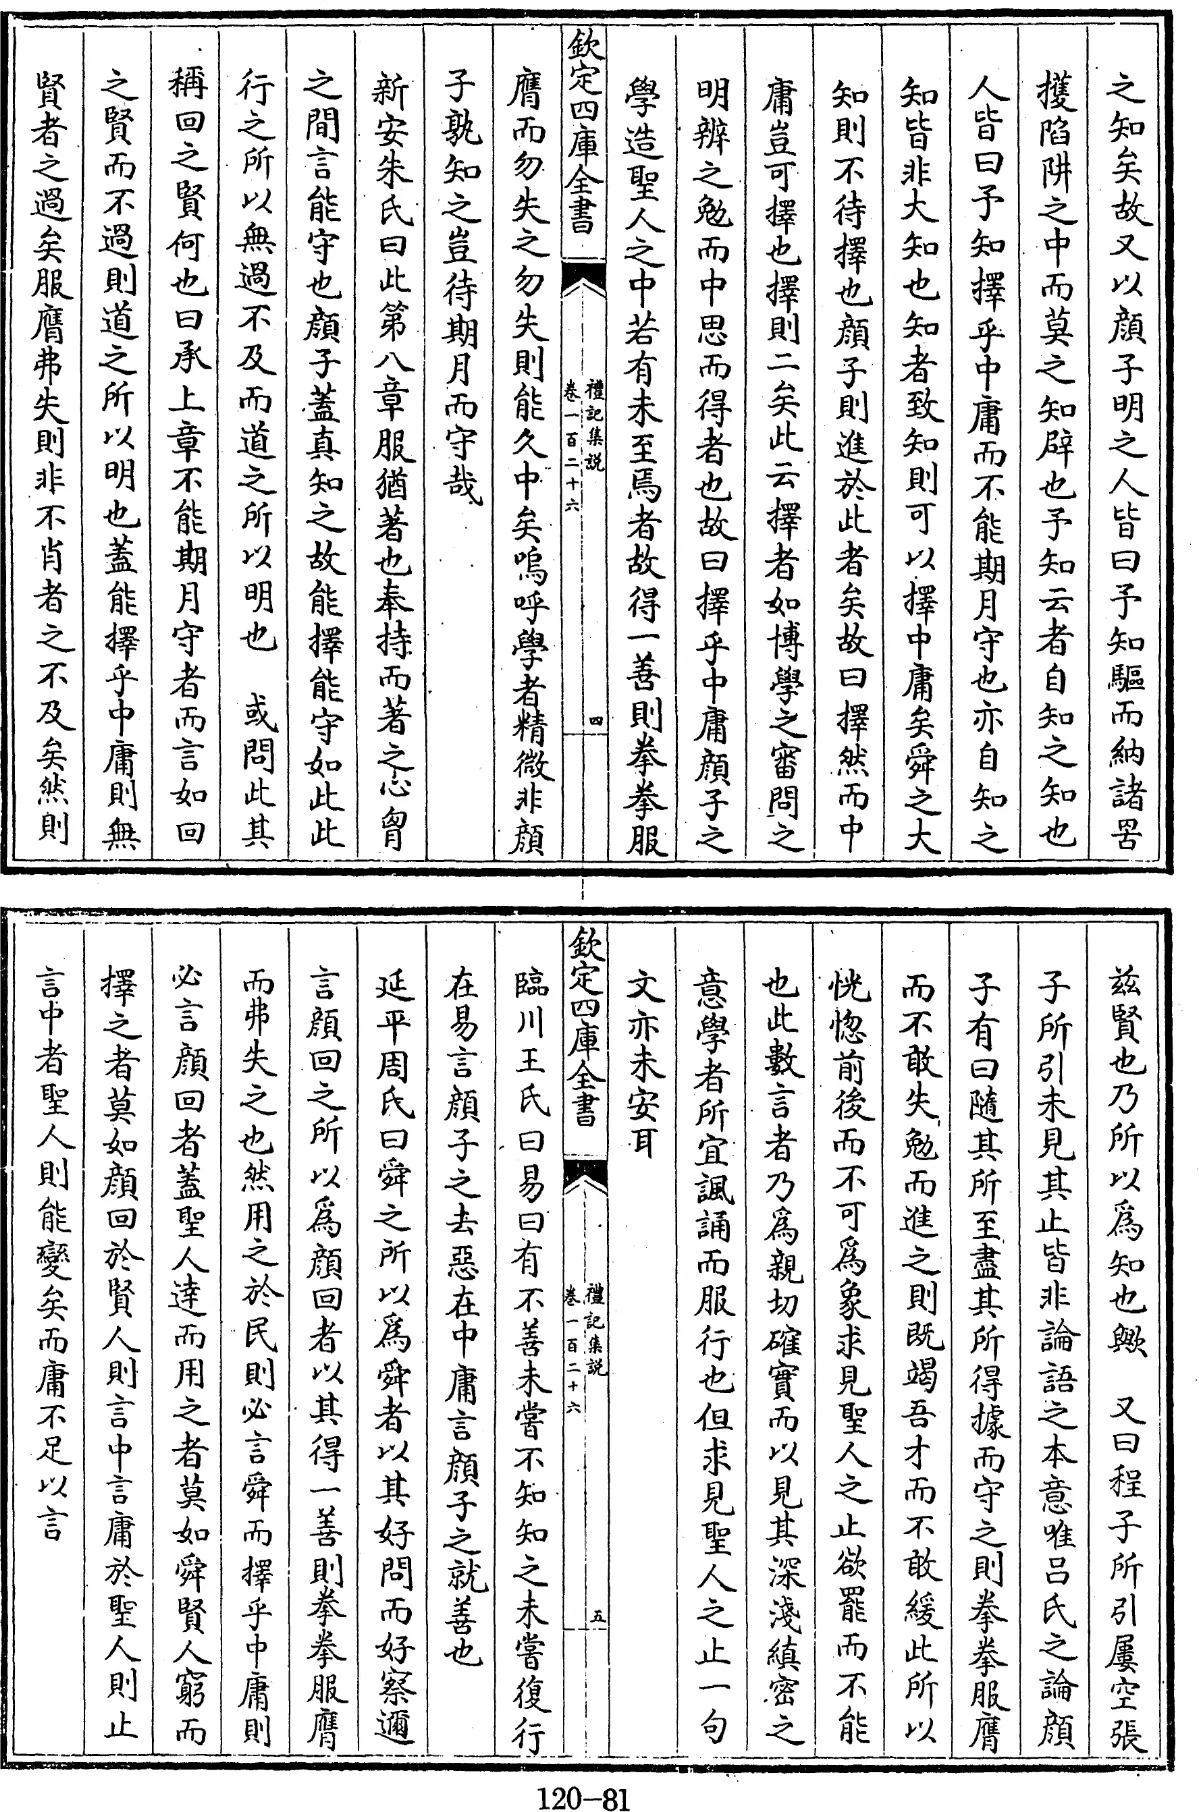 之知矣故又以顔子明之人皆曰予知驅而納諸罟
擭陷阱之中而莫之知辟也予知云者自知之知也
人皆曰予知擇乎中庸而不能期月守也亦自知之
知皆非大知也知者致知則可以擇中庸矣舜之大
知則不待擇也顔子則進於此者矣故曰擇然而中
庸豈可擇也擇則二矣此云擇者如博學之審問之
明辨之勉而中思而得者也故曰擇乎中庸顔子之
學造聖人之中若有未至焉者故得一善則拳拳服
欽定四庫全書
禮記集説
卷一百二十六
四
膺而勿失之勿失則能久中矣嗚呼學者精微非顔
子孰知之豈待期月而守哉
新安朱氏曰此第八章服猶著也奉持而著之心胷
之間言能守也顔子蓋真知之故能擇能守如此此
行之所以無過不及而道之所以明也　或問此其
稱回之賢何也曰承上章不能期月守者而言如回
之賢而不過則道之所以明也蓋能擇乎中庸則無
賢者之過矣服膺弗失則非不肖者之不及矣然則
茲賢也乃所以為知也歟　又曰程子所引屢空張
子所引未見其止皆非論語之本意唯呂氏之論顔
子有曰隨其所至盡其所得據而守之則拳拳服膺
而不敢失勉而進之則既竭吾才而不敢緩此所以
恍惚前後而不可為象求見聖人之止欲罷而不能
也此數言者乃為親切確實而以見其深淺縝密之
意學者所宜諷誦而服行也但求見聖人之止一句
文亦未安耳
欽定四庫全書
禮記集説
卷一百二十六
五
臨川王氏曰易曰有不善未嘗不知知之未嘗復行
在易言顔子之去惡在中庸言顔子之就善也
延平周氏曰舜之所以為舜者以其好問而好察邇
言顔回之所以為顔回者以其得一善則拳拳服膺
而弗失之也然用之於民則必言舜而擇乎中庸則
必言顔回者蓋聖人達而用之者莫如舜賢人窮而
擇之者莫如顔回於賢人則言中言庸於聖人則止
言中者聖人則能變矣而庸不足以言
120-81